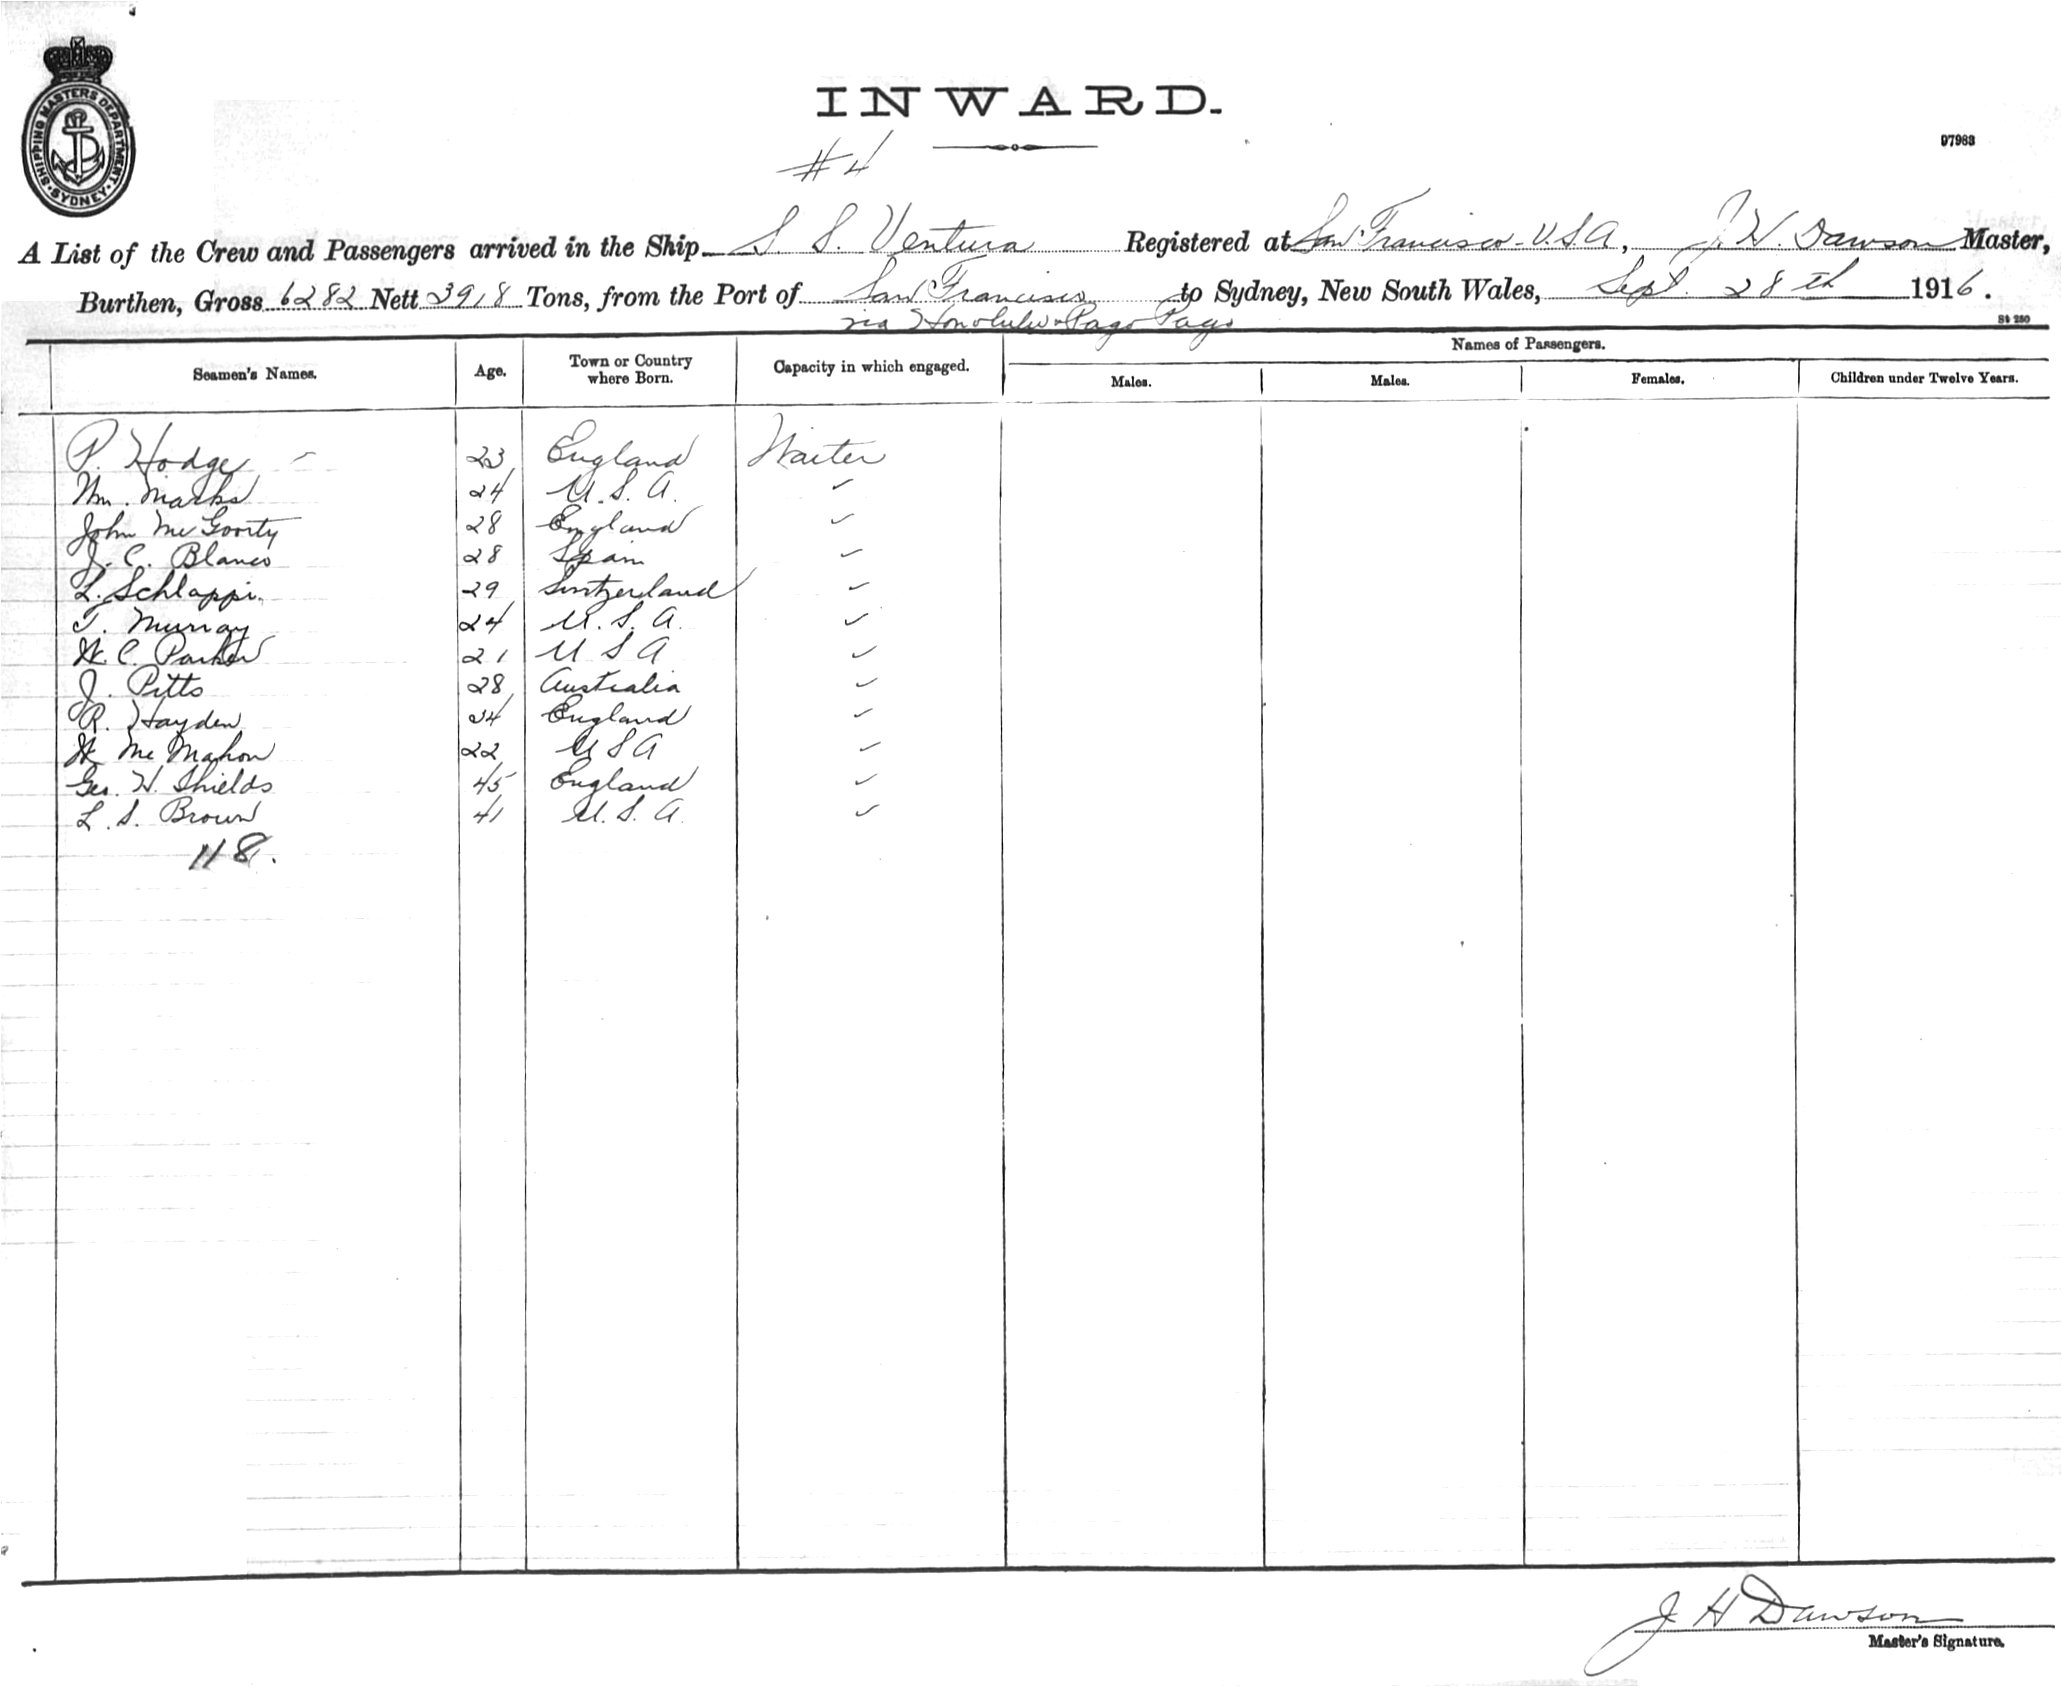 SHIPPING MASTERS DEPARTMENT
SYDNEY
INWARD.
#4
97983
A List of the Crew and Passengers arrived in the Ship S. S. Ventura Registered at San Francisco - U.S.A, J. H. Dawson Master,
Burthen, Gross 6282 Nett 3918 Tons, from the Port of San Francisco to Sydney, New South Wales, Sept. 28th 1916.
via Honolulu & Pago Pago
St 280
Seamen's Names. Age. Town or Country where Born. Capacity in which engaged. Names of Passengers.
Males. Males. Females. Children under Twelve Years.
P. Hodge 23 England Waiter
Wm. Marks 24 U.S.A. "
John McGoorty 28 England "
J. C. Blanco 28 Spain "
L. Schlappi. 29 Switzerland "
T. Murray 24 U.S.A. "
W. C. Parker 21 U S A "
J. Pitts 28 Australia "
R. Hayden 24 England "
W McMahon 22 U S A "
Geo. H. Shields 45 England "
L. S. Brown 41 U.S.A. "
118.
J H Dawson
Master's Signature.